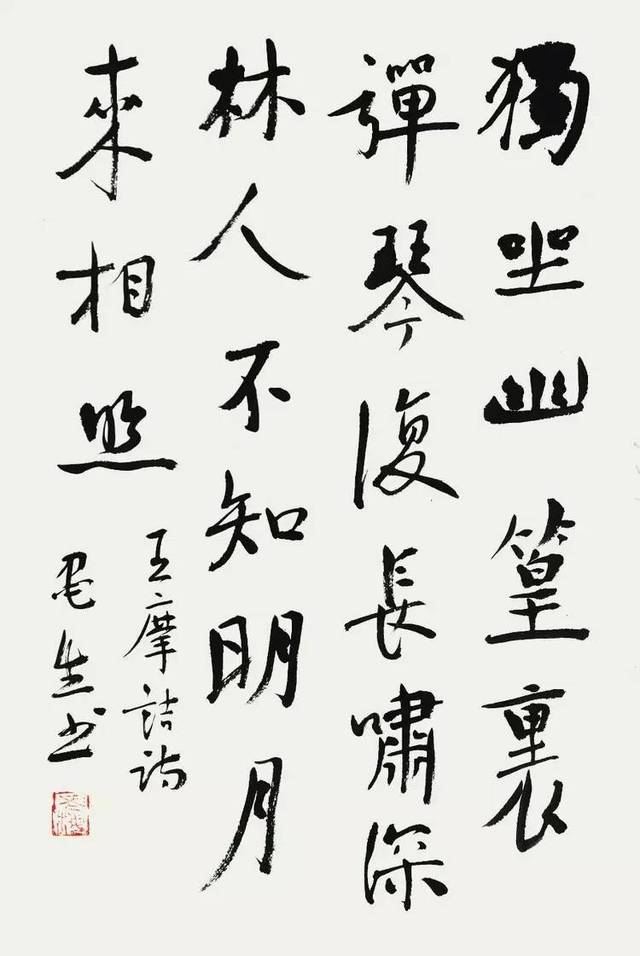 獨坐幽篁裏
彈琴復長嘯深
林人不知明月
來相照
王摩詰詩
生书